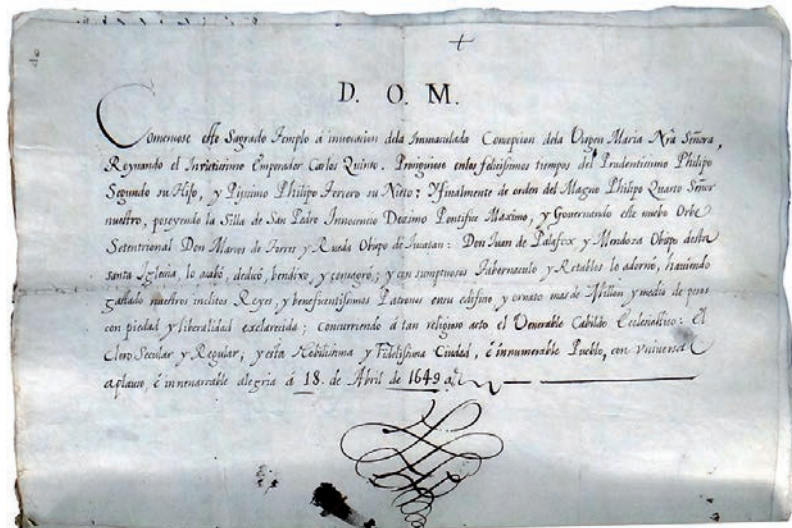 D. O. M.
Comensose este Sagrado Templo á invocacion dela Immaculada Concepcion dela Virgen Maria Nrã Señora,
Reynando el Invictissimo Emperador Carlos Quinto. Prosiguiose enlos felicissimos tiempos del Prudentissimo Philipo
Segundo su Hijo, y Piissimo Philipo Tercero su Nieto: Y finalmente de orden del Magno Philipo Quarto Señor
nuestro, poseyendo la Silla de San Pedro Innocencio Dezimo Pontifice Maximo, y Governando este nuebo Orbe
Setentrional Don Marcos de Torres y Rueda Obispo de Iucatan: Don Juan de Palafox y Mendoza Obispo desta
santa Iglesia, lo acabó, dedicó, bendixo, y consagró; y con sumptuoso Tabernaculo y Retablos lo adornó, haviendo
gastado nuestros inclitos Reyes, y beneficentissimos Patrones ensu edificio y ornato mas de Millon y medio de pesos
con piedad y liberalidad esclarecida; concurriendo á tan religioso acto el Venerable Cabildo Ecclesiastico: El
Clero Secular y Regular; y esta Nobilissima y Fidelissima Ciudad, é innumerable Pueblo, con vniversal
aplauso, é innenarrable alegria á 18. de Abril de 1649 a.